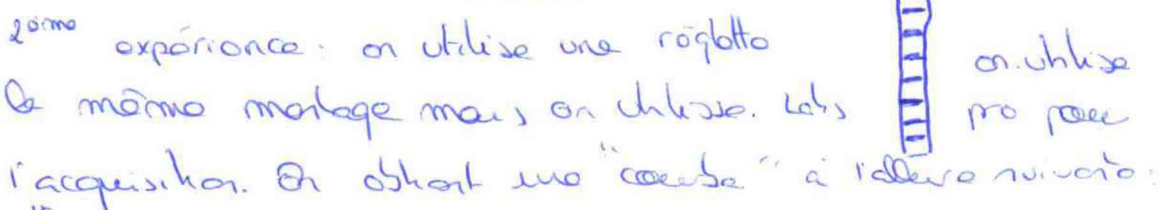 2ème expérience. on utilise une réglette
le même montage mais on utilise. Latis on.utilise
pro pour
l'acquisition. On obtient une "courbe" à l'allure suivante: